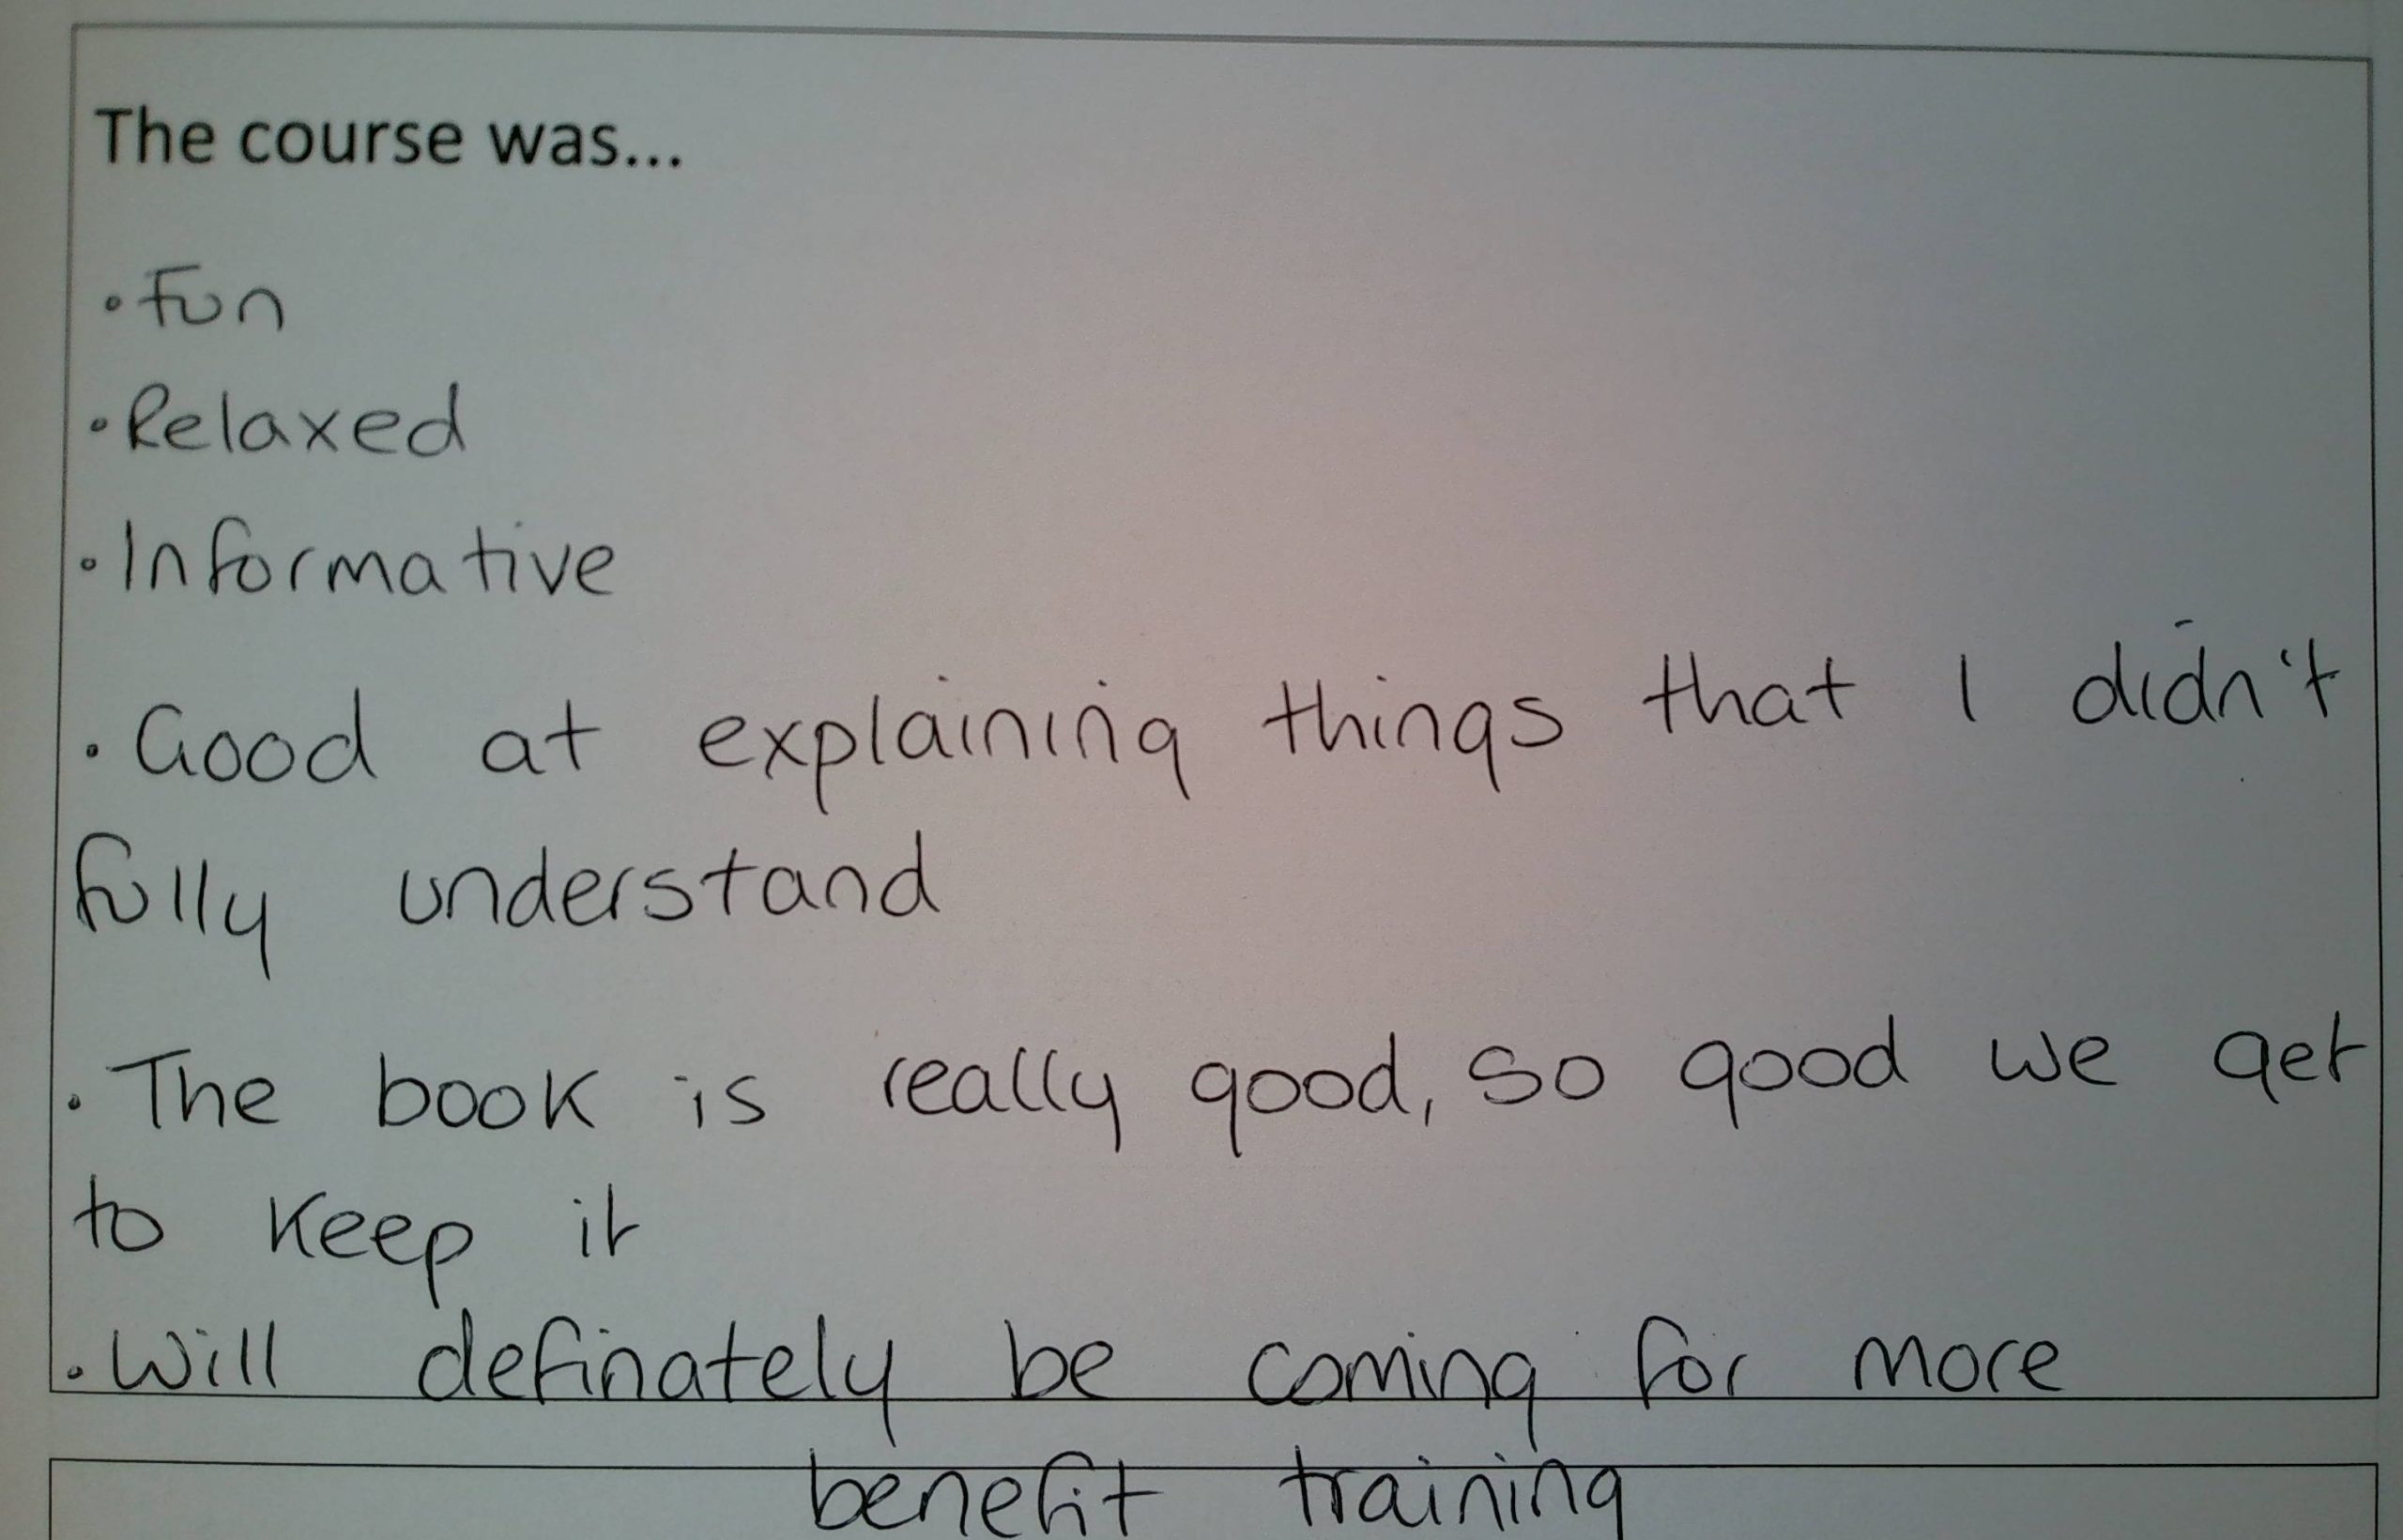 The course was...
• Fun
• Relaxed
• Informative
• Good at explaining things that I didn't
fully understand
• The book is really good, so good we get
to keep it
• Will definately be coming for more
benefit training